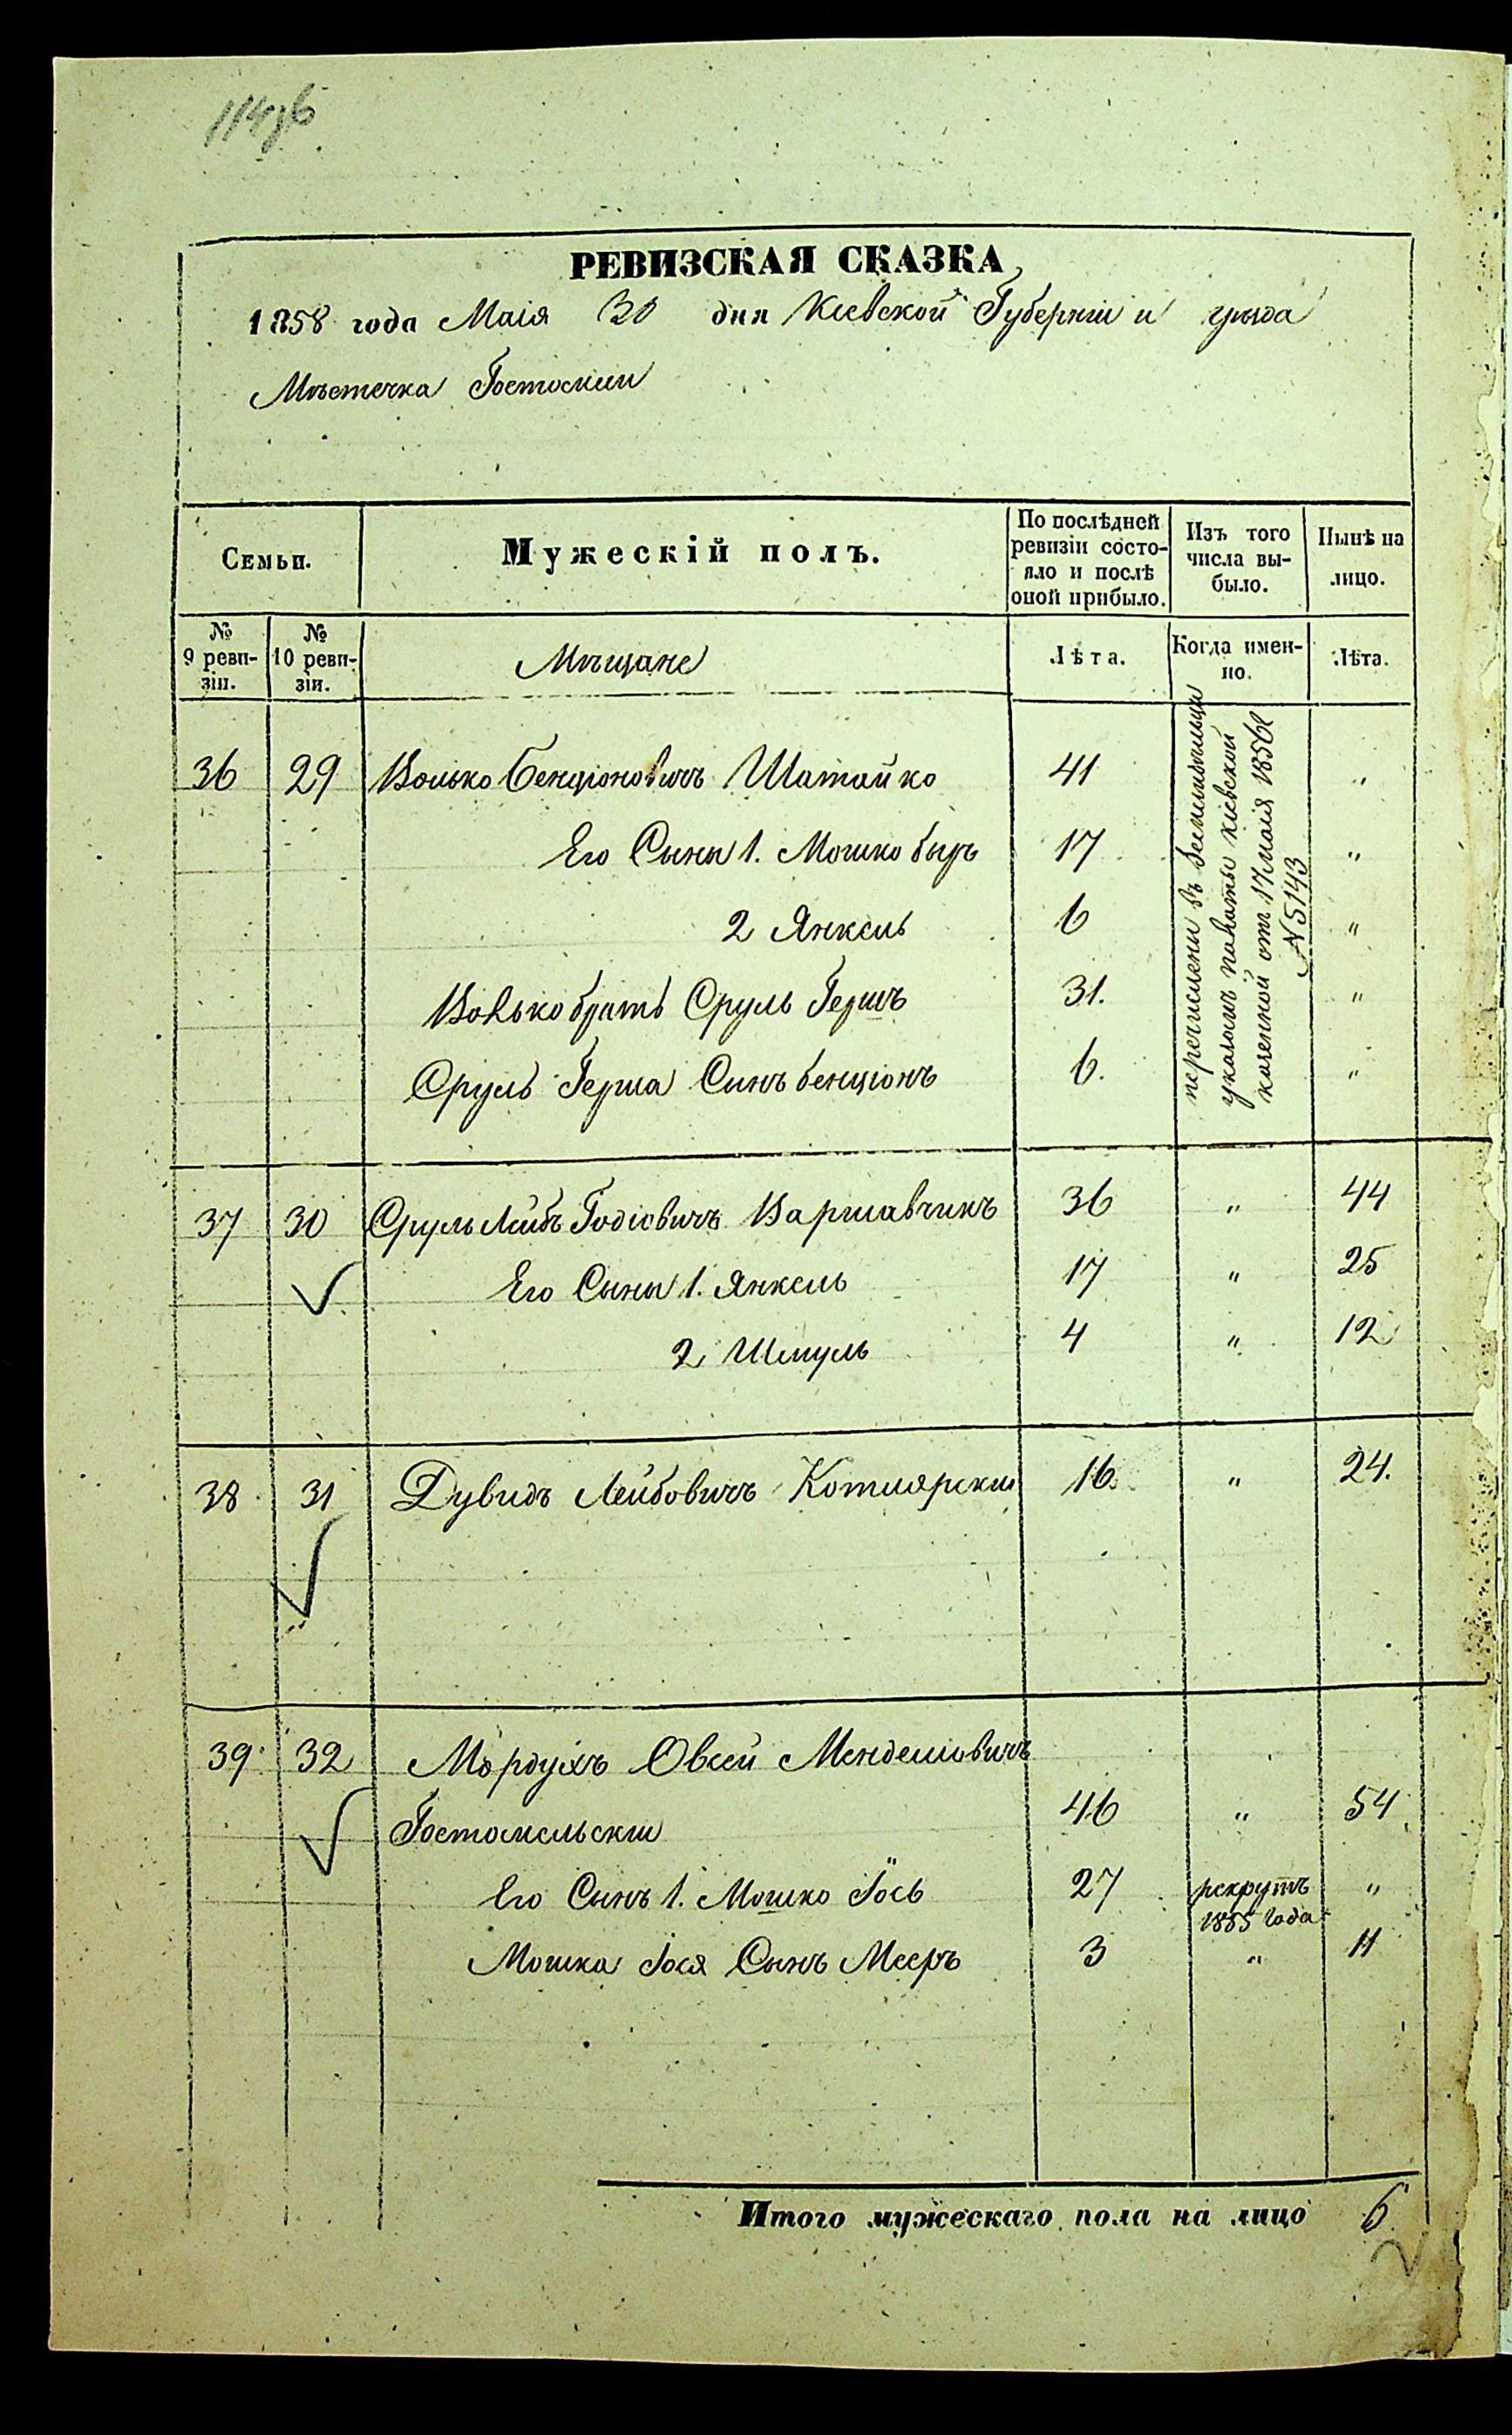 114об
РЕВИЗСКАЯ СКАЗКА
1858 года Маія 30 дня Кіевской Губерніи и уѣзда
Мѣстечка
Семьи.
Мужескій полъ.
По послѣдней
ревизіи состо-
яло и послѣ
оной прибыло.
Изъ того
числа вы-
было.
Нынѣ на
лицо.
№
9 реви-
зіи.
№
10 реви-
зіи.
Мѣщане
Лѣта.
Когда имен-
но.
Лѣта.
36 29 Волько Бенціоновичъ Шатайко 41 "
Его Сыны 1. Мошко Беръ 17 "
2 Янкель 6 "
Волько братъ Сруль Гершъ 31. "
Сруль Герша Сынъ бенціонъ 6. "
перечислены въ
указомъ палаты Кіевской
казенной отъ 17 маія 1856
N 5143
37 30 Сруль Лейбъ Варшавчикъ 36 " 44
Его Сыны 1. Янкель 17 " 25
2 Шмуль 4 " 12
38 31 Дувидъ Лейбовичъ Котлярскій 16. " 24.
39 32 Мордухъ Овсей Менделіовичъ
Гостомельскій 46 " 54
Его Сынъ 1. Мошко Іось 27 рекрутъ "
1855 года
Мошка Іося Сынъ Мееръ 3 " 11
Итого мужескаго пола на лицо 6